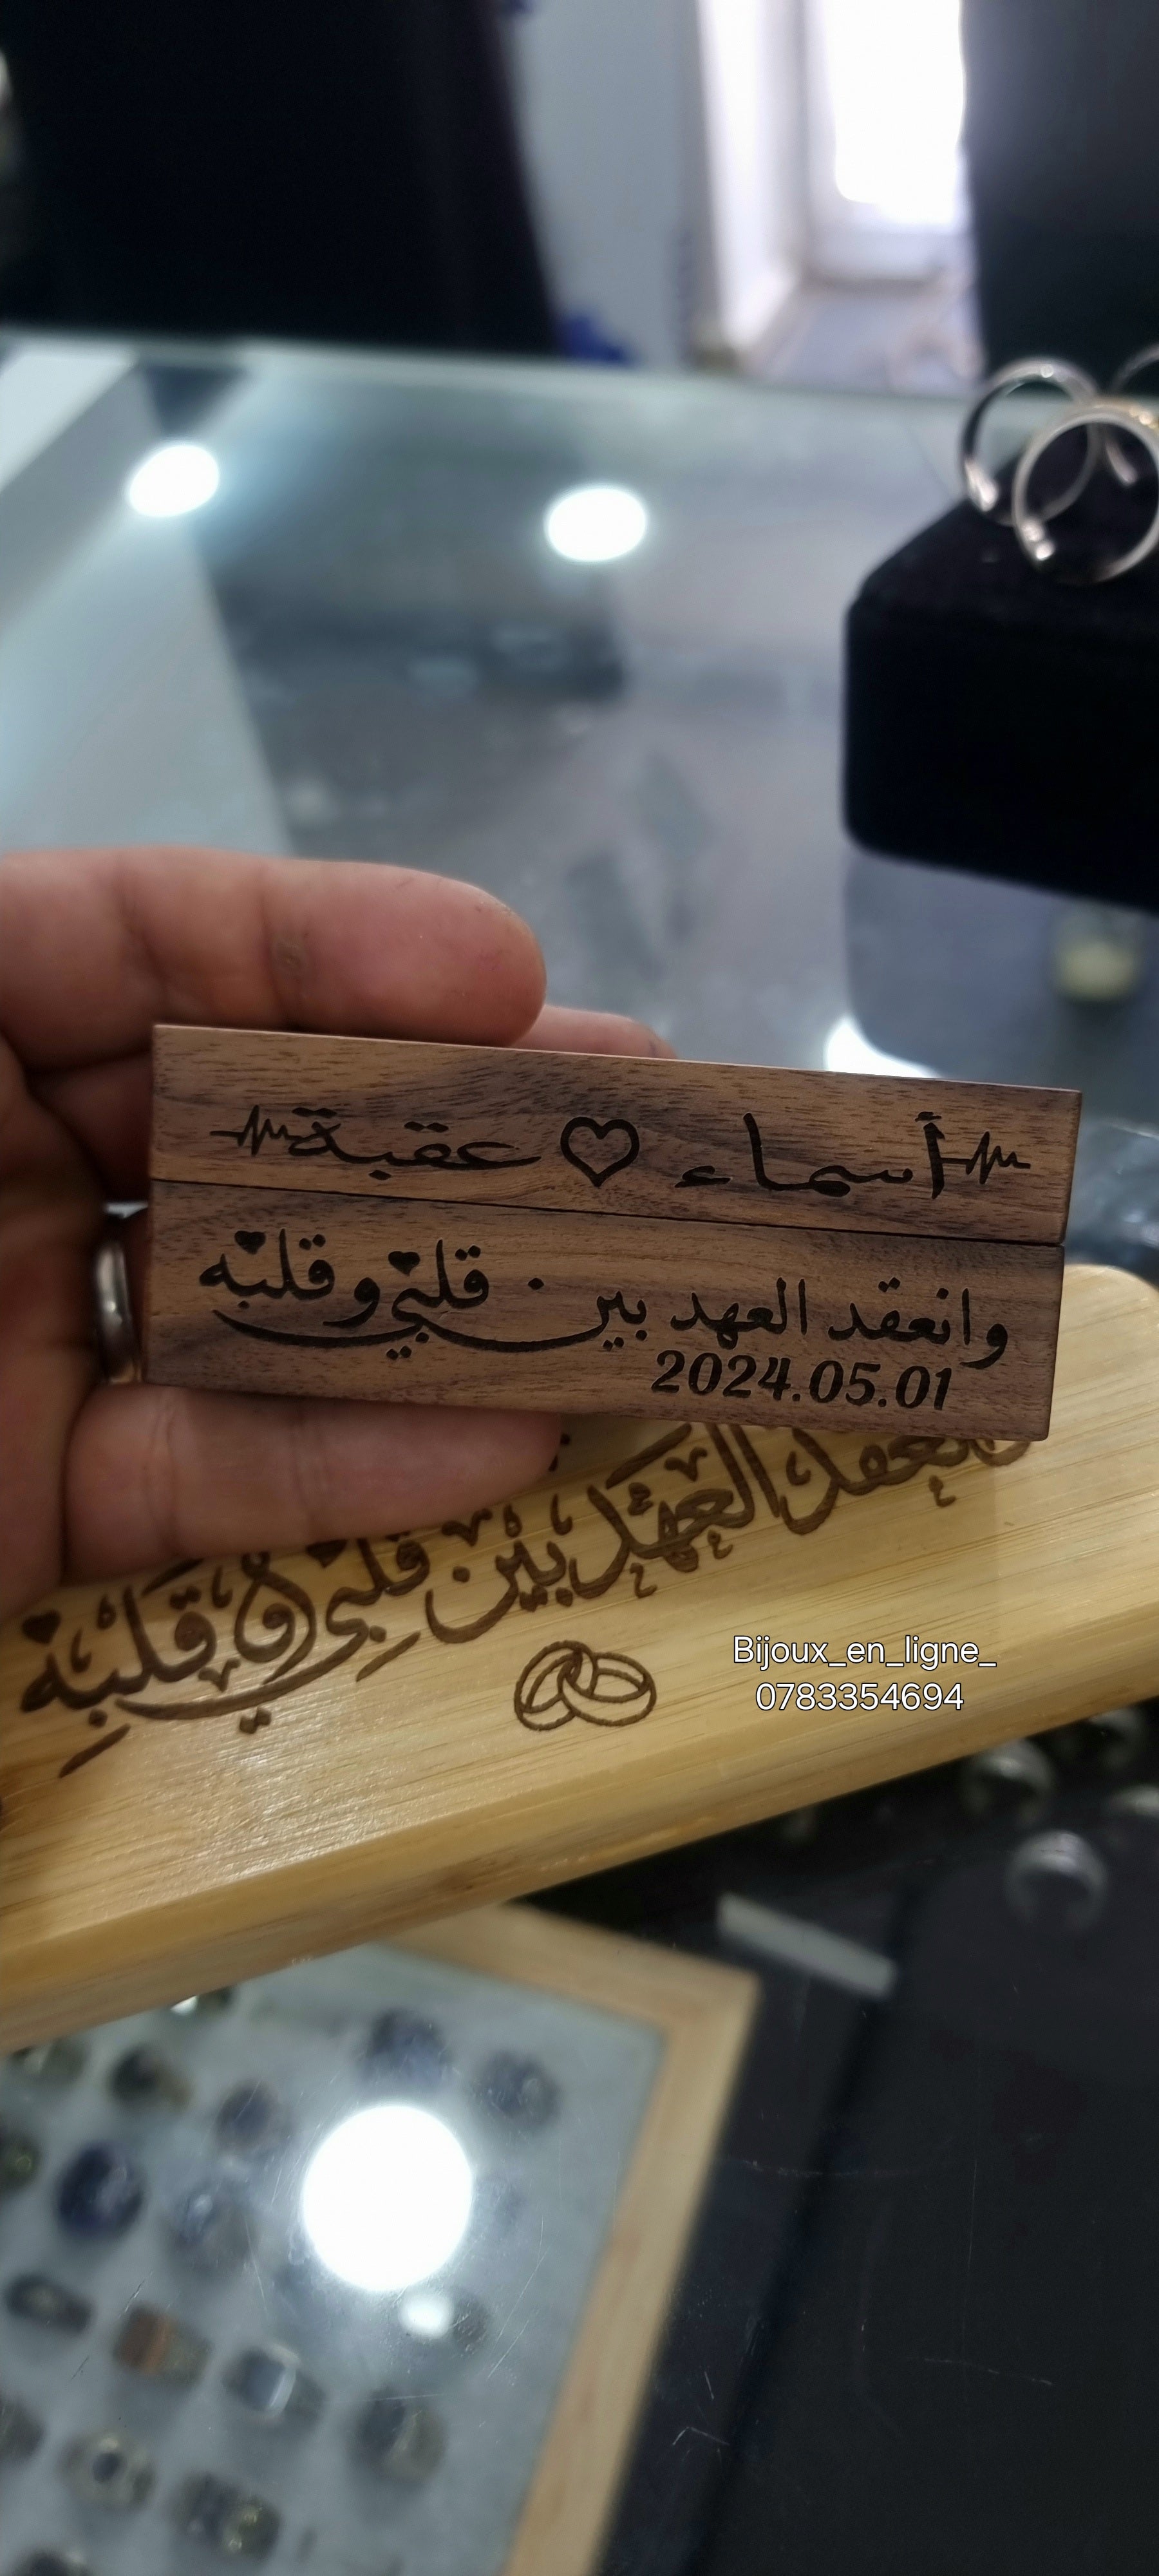 أسماء ♡ عقبة
وانعقد العهد بين قلبي وقلبه
2024.05.01
نعقد العهد بين قلبي و قلبه
Bijoux_en_ligne_
0783354694